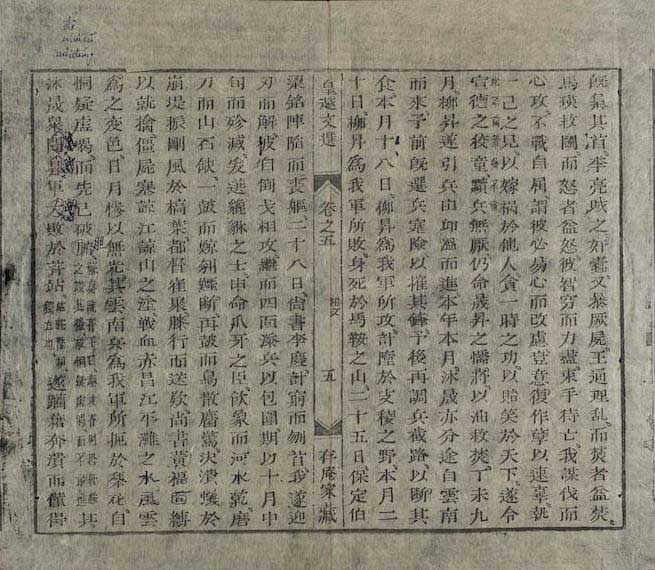 既梟其首李亮賊之奸蠹又暴厥屍王通理亂而焚者益焚
馬瑛救鬪而怒者益怒彼智窮而力盡束手待亡我謀伐而
心攻不戰自屈謂彼必易心而改慮豈意復作孽以速辜執
一己之見以嫁禍於他人貪一時之功以貽笑於天下遂令
宣德之狡童黷兵無厭仍命晟昇之懦將以油救焚丁未九
月柳昇遂引兵由邱溫而進本年本月沐晟亦分途自雲南
而來予前既選兵塞險以摧其鋒予後再調兵截路以斷其
食本月十八日柳昇為我軍所攻計墮於支稜之野本月二
十日柳昇為我軍所敗身死於馬鞍之山二十五日保定伯
皇越文選 卷之五 五 存庵家藏
梁銘陣陷而喪軀二十八日尚書李慶計窮而刎首我遂迎
刃而解彼自倒戈相攻繼而四面添兵以包圍期以十月中
旬而殄滅爰選貔貅之士申命爪牙之臣飲象而河水乾磨
刀而山石缺一鼓而鯨刳鱷斷再鼓而鳥散麕驚決潰蟻於
崩堤振剛風於槁葉都督崔聚膝行而送款尚書黃福面縛
以就擒僵屍塞諒江諒山之塗戰血赤昌江平灘之水風雲
為之變色日月慘以無光其雲南兵為我軍所扼於梨花自
恫疑虛喝而先已破膽其
沐晟眾聞昇軍大敗於芹站遂躪藉奔潰而僅得